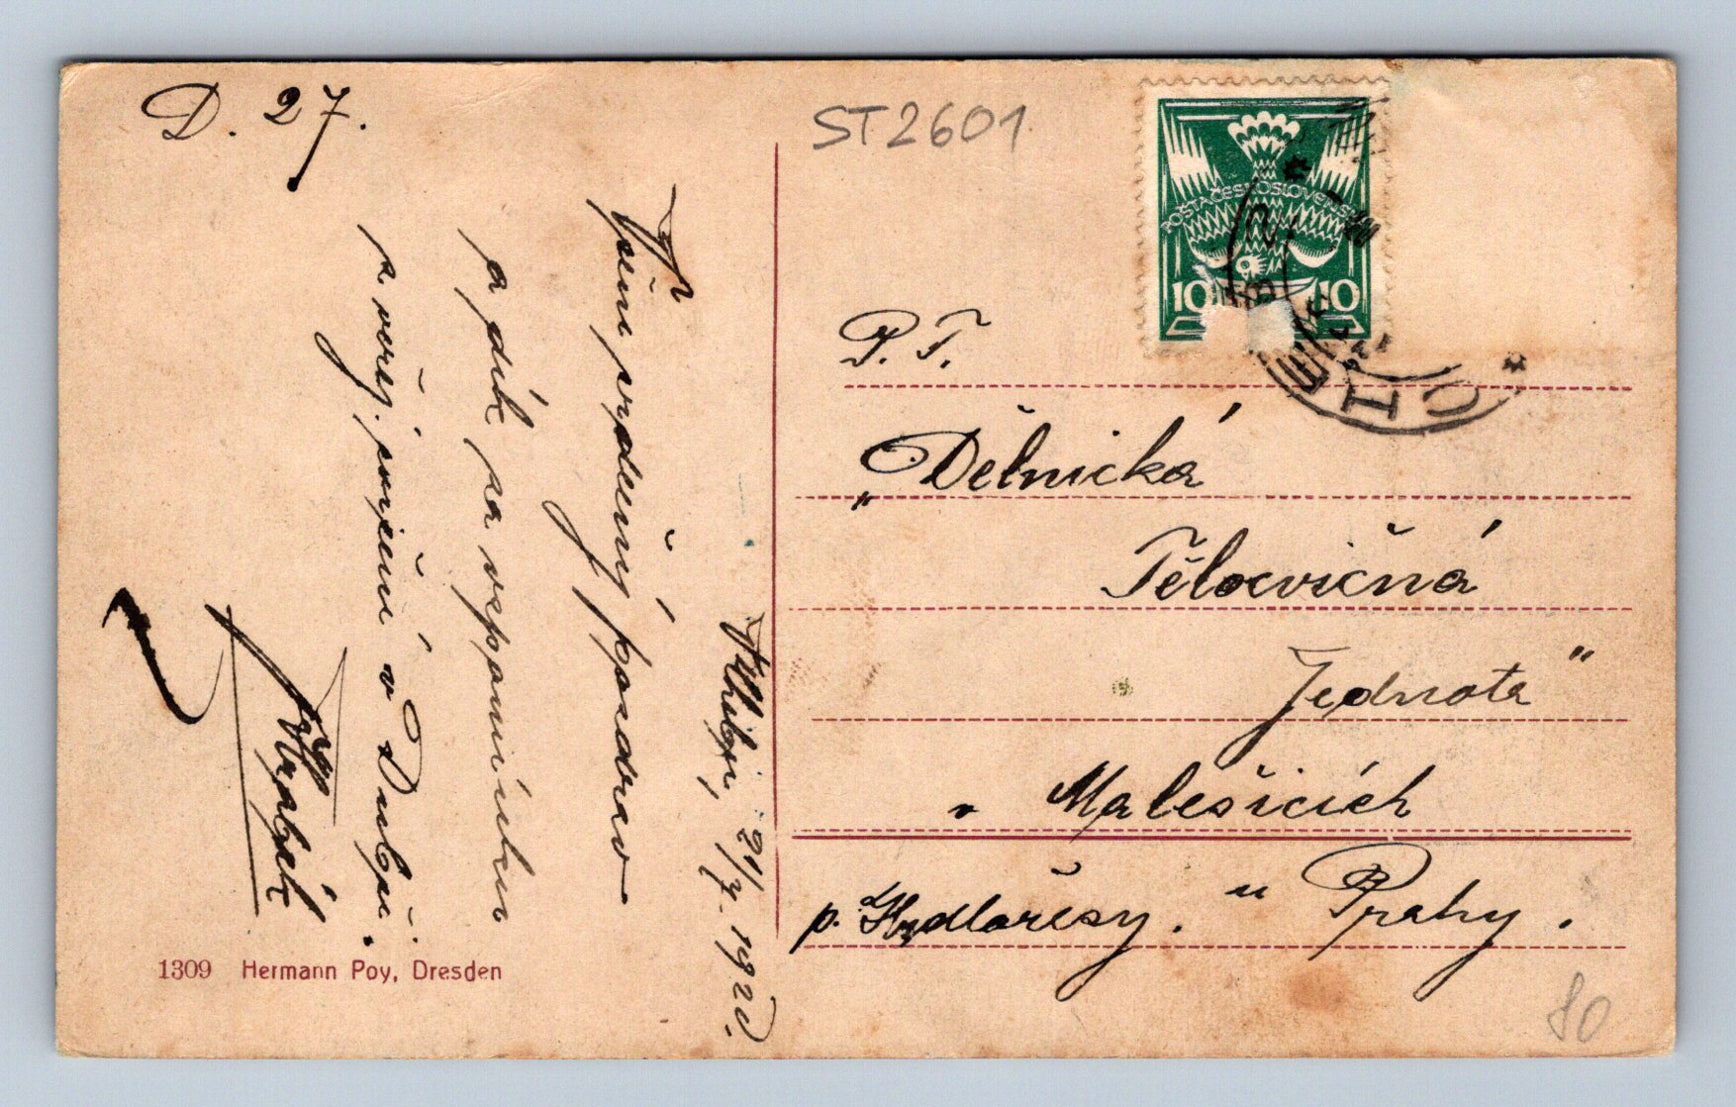 D. 27.
ST2601
POŠTA ČESKOSLOVENSKÁ
10 10
P. T.
„Dělnická
Tělocvičná
Jednota"
v Malešicích
p. Hrdlořezy. u Prahy.
21/7. 1920.
srdečný pozdrav
a dík za vzpomínku
v Dubči.
1309 Hermann Poy, Dresden
80